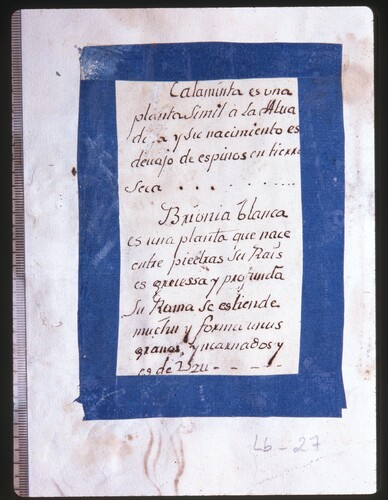 Calaminta es una
planta Simil à la
y su nacimiento es
devajo de espinos en tierra
seca . . . . . . . .
Brionia blanca
es una planta que nace
entre piedras Su Rais
es gruessa y profunda
Su Rama se estiende
mucho y forma unos
granos yncarnados y
es de
Lb - 27